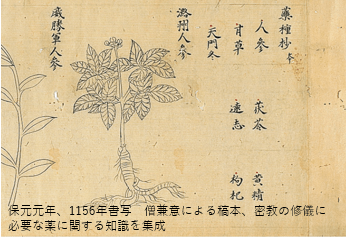 藥種抄 本
人參 茯苓 黄精
甘草 遠志 枸杞
天門冬
潞州人參
威勝軍人參
保元元年、1156年書写 僧兼意による稿本、密教の修儀に
必要な薬に関する知識を集成